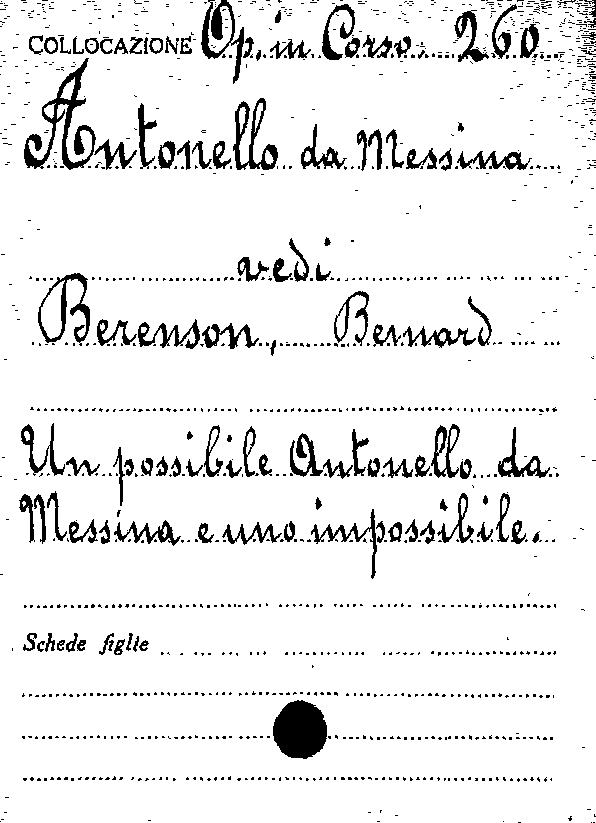 COLLOCAZIONE Op. in Corso. 260
Antonello da Messina
vedi
Berenson, Bernard
Un possibile Antonello da
Messina e uno impossibile.
Schede figlie